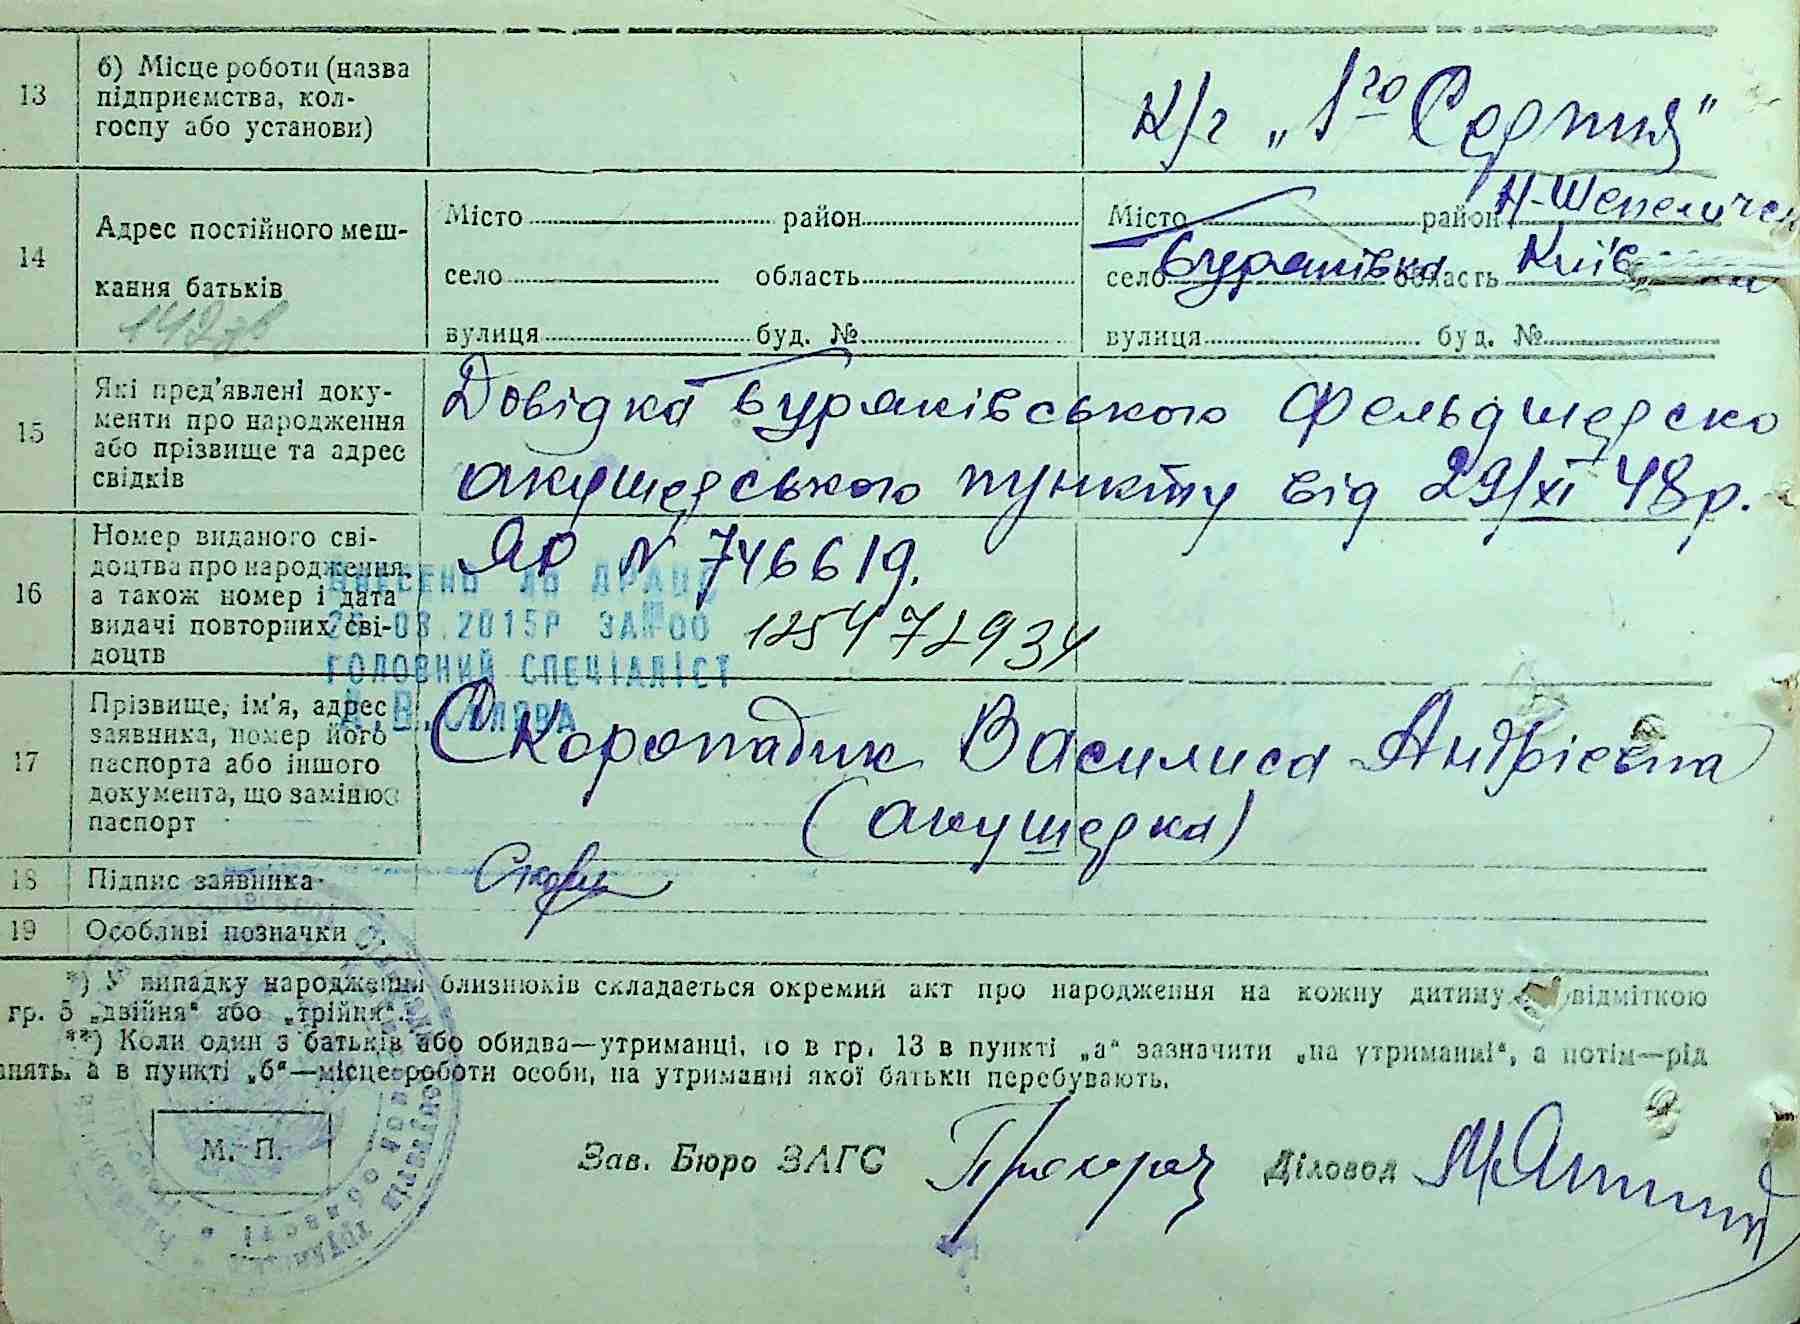 13 б) Місце роботи (назва
підприємства, кол-
госпу або установи)
К/г „1го Серпня"
14 Адрес постійного меш-
кання батьків
Місто район
село область
вулиця буд. №
Місто район Н-Шепелич
село Буряківка область Київ
вулиця буд. №
15 Які пред'явлені доку-
менти про народження
або прізвище та адрес
свідків
Довідка Буряківського Фельдшерско
акушерського пункту від 29/XI 48р.
16 Номер виданого сві-
доцтва про народження,
а також номер і дата
видачі повторних сві-
доцтв
ЯЮ N 746619.
125472934
ВНЕСЕНО ДО ДРАЦС
.08.2015Р
ГОЛОВНИЙ СПЕЦІАЛІСТ
17 Прізвище, ім'я, адрес
заявника, номер його
паспорта або іншого
документа, що замінює
паспорт
Скоропадик Василиса Андрієвна
(акушерка)
18 Підпис заявника
19 Особливі позначки
*) У випадку народження близнюків складається окремий акт про народження на кожну дитину з відміткою
гр. 5 „двійня" або „трійня".
**) Коли один з батьків або обидва—утриманці, то в гр. 13 в пункті „а" зазначити „на утриманні", а потім—рід
занять, а в пункті „б"—місце роботи особи, на утриманні якої батьки перебувають.
М. П.
Зав. Бюро ЗАГС
Діловод